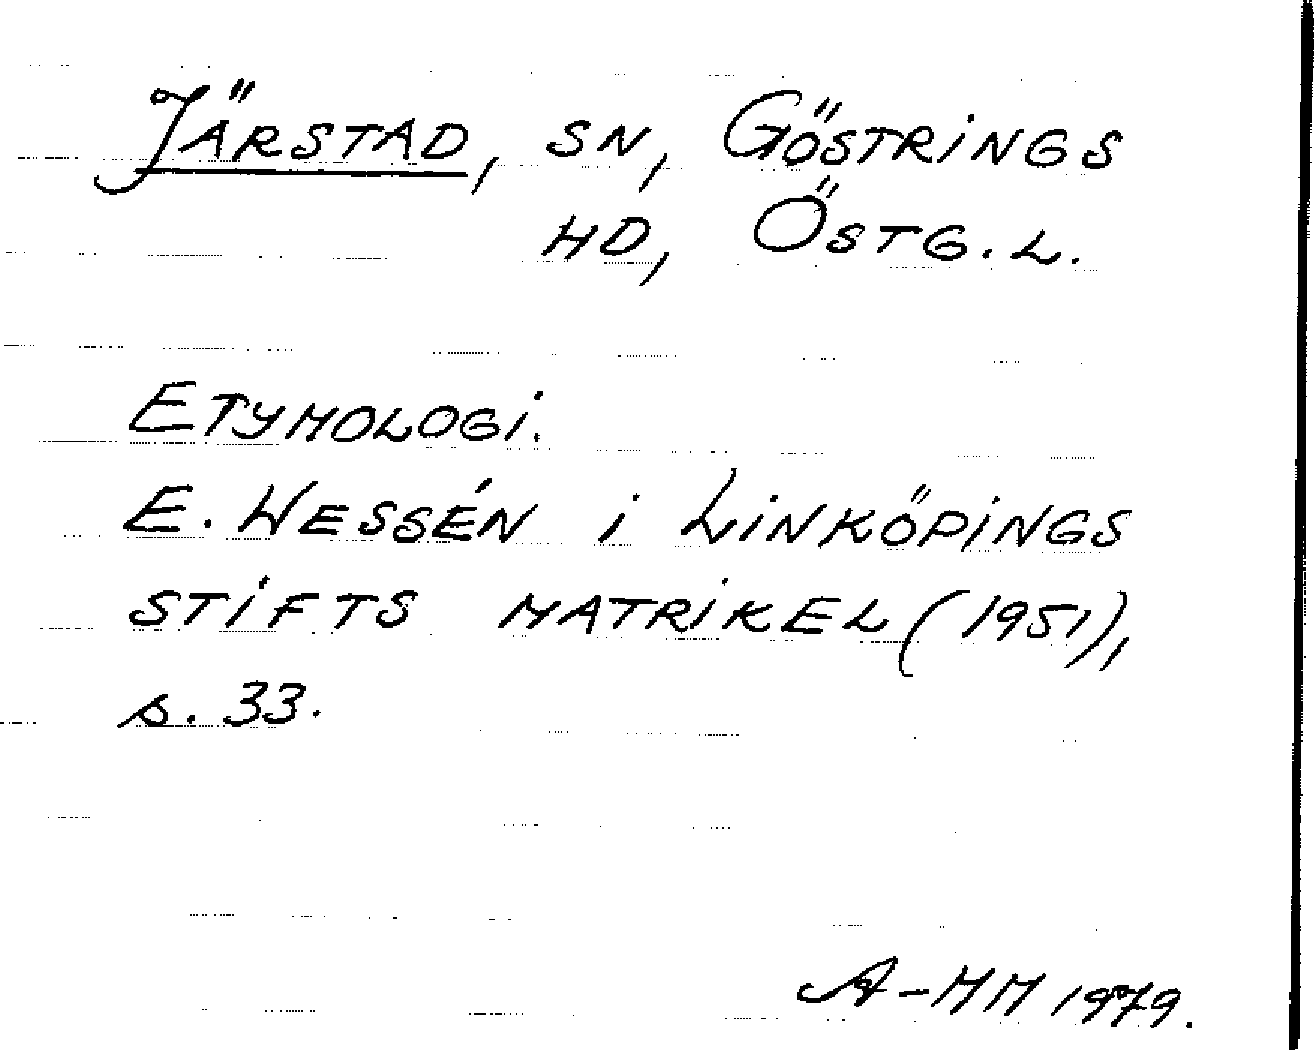 Järstad, sn, Göstrings
hd, Östg.l.
Etymologi.
E. Wessén i Linköpings
stifts matrikel (1951),
s. 33.
A-MM 1979.